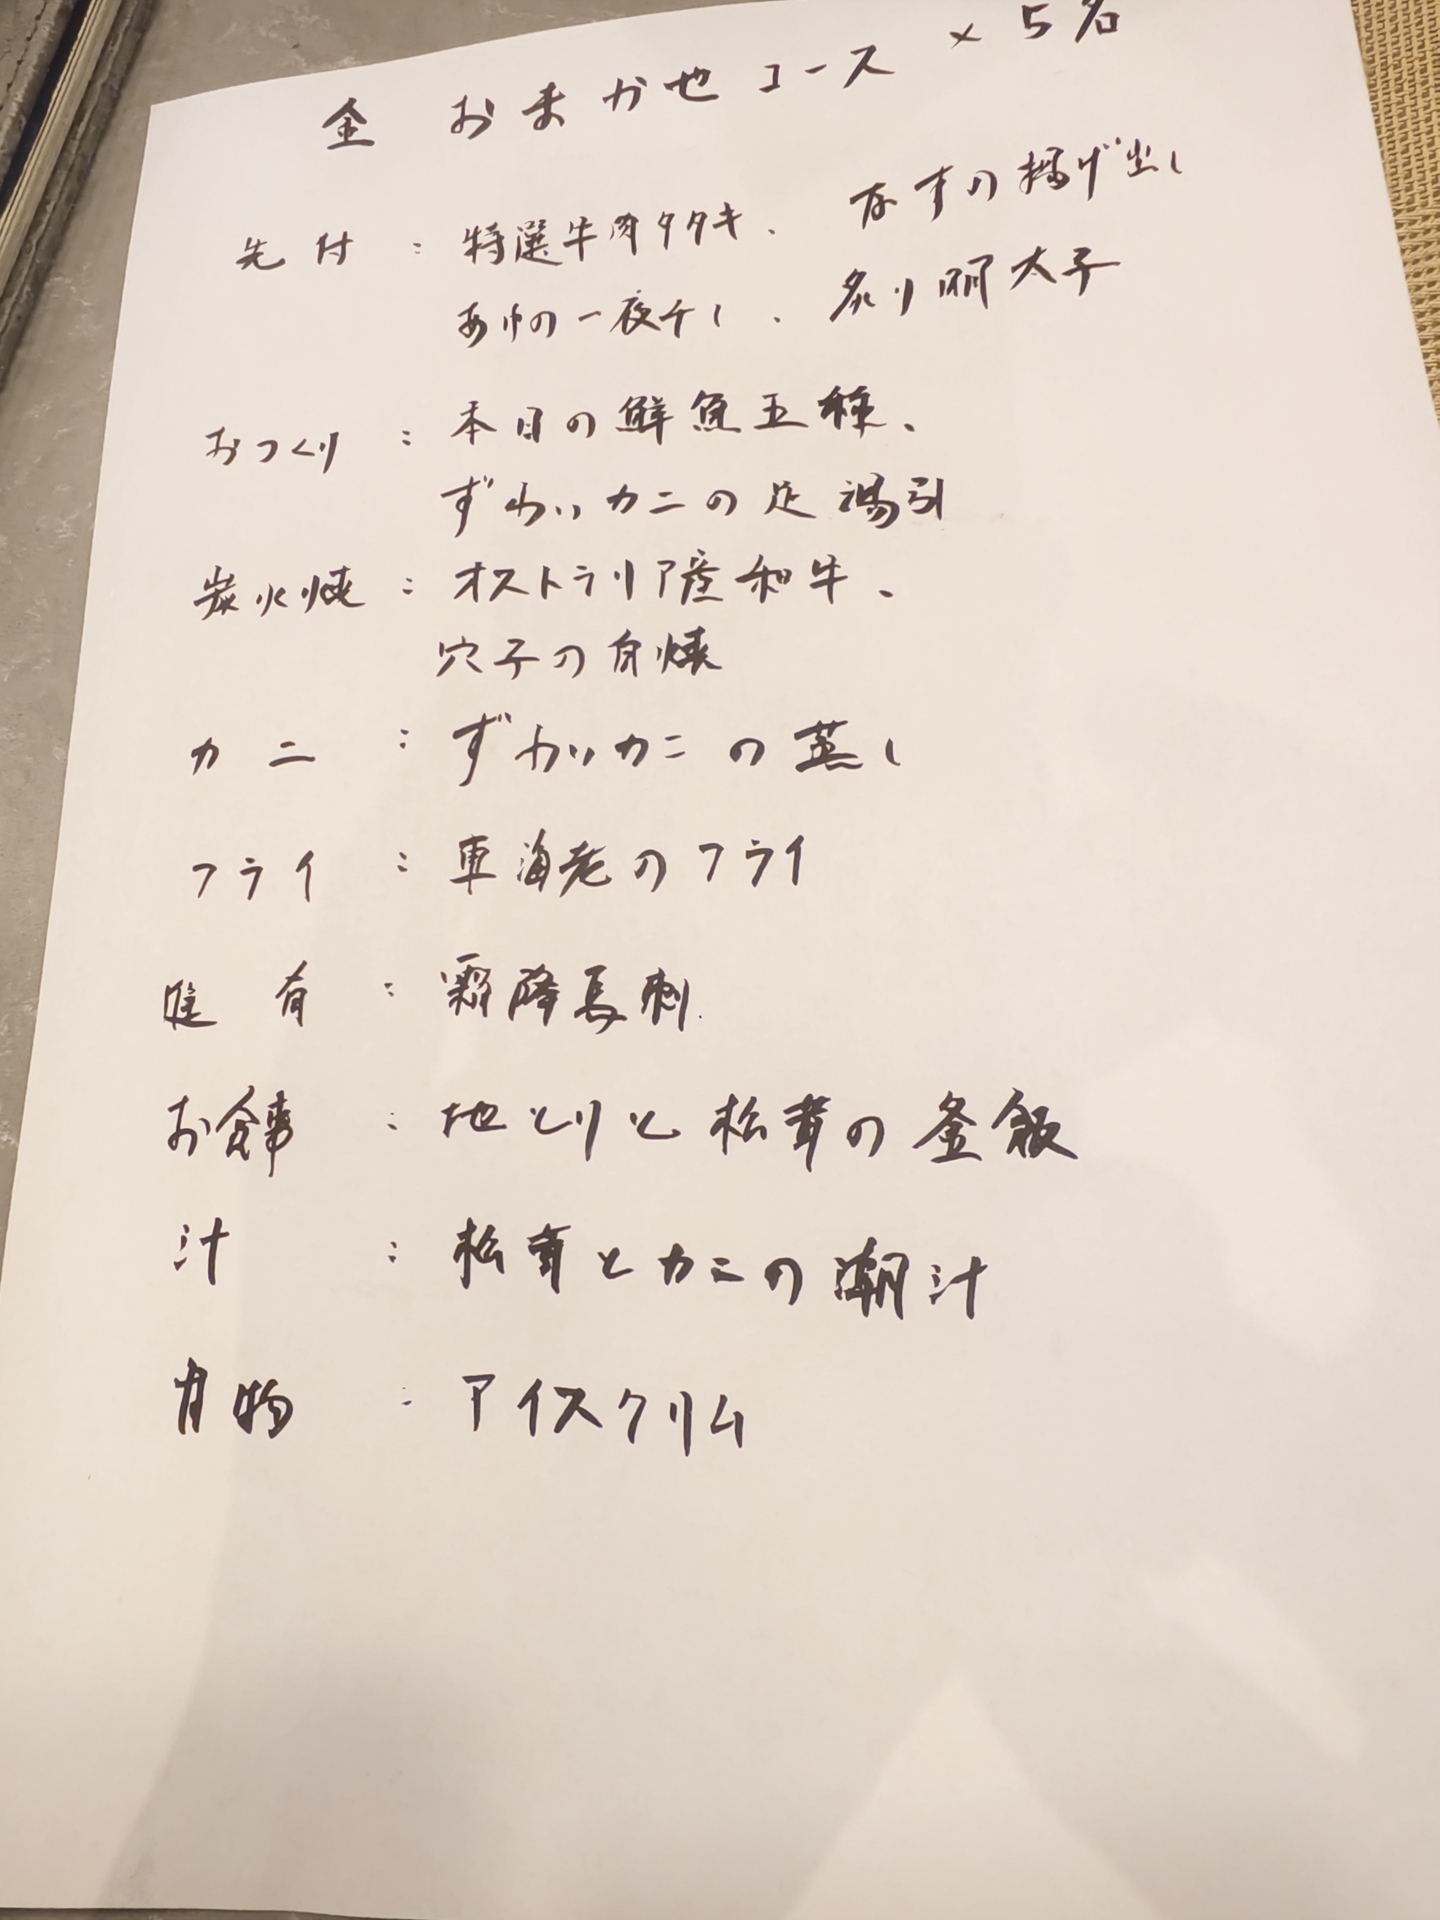 金 おまかせコース × 5名
先付 : 特選牛肉タタキ、 なすの揚げ出し
あゆの一夜干し、 炙り明太子
おつくり : 本日の鮮魚五種、
ずわいカニの足湯引
炭火焼 : オストラリア産和牛、
穴子の白焼
カニ : ずわいカニの蒸し
フライ : 車海老のフライ
: 霜降馬刺
お食事 : 地とりと松茸の釜飯
汁 : 松茸とカニの潮汁
甘物 : アイスクリム